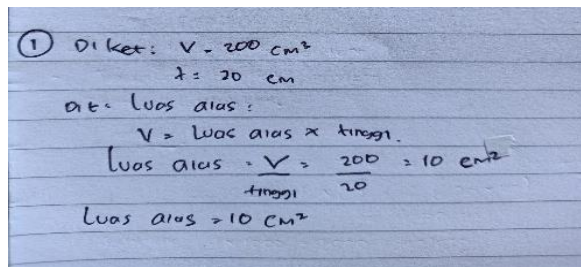 ① Diket: V = 200 cm³
t = 20 cm
Dit: Luas alas :
V = Luas alas x tinggi.
Luas alas = V/tinggi = 200/20 = 10 cm²
Luas alas = 10 cm²